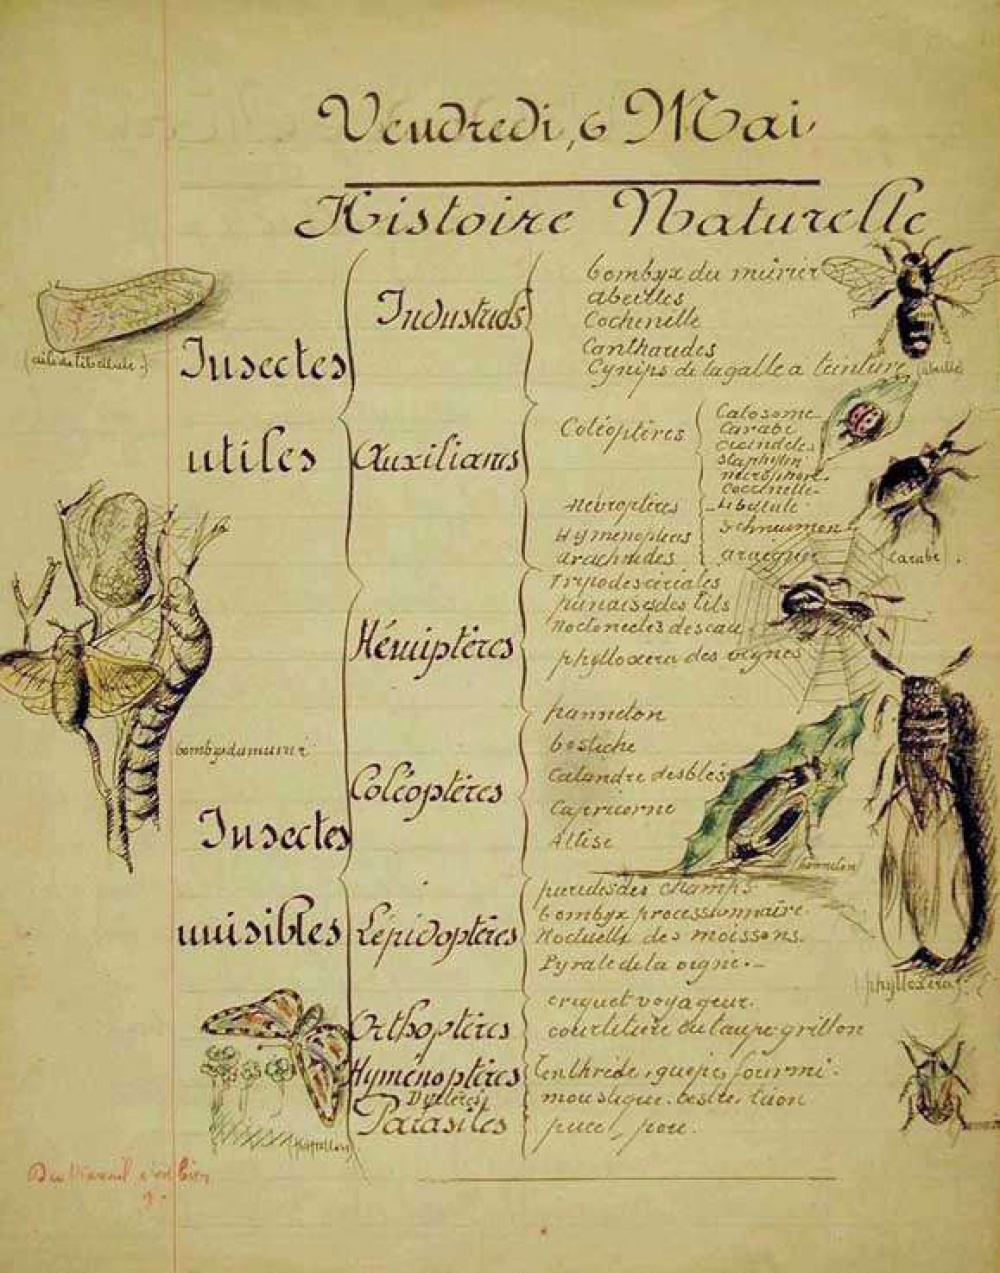 Vendredi, 6 Mai
Histoire Naturelle
Insectes
utiles
Industriels
bombyx du mûrier
abeilles
Cochenille
Cantharides
Cynips de la galle a teinture
Auxiliaires
Coléoptères
Calosome
Carabe
cicindèle
staphylin
nécrophore
coccinelle
Névroptères
libellule
Hyménoptères
Ichneumon
arachnides
araignée
Insectes
nuisibles
Hémiptères
punaises des lits
Noctonectes des eaux
phylloxera des vignes
Coléoptères
hanneton
bostiche
Calandre des blés
Capricorne
Altise
Lépidoptères
bombyx processionnaire
Noctuelle des moissons.
Pyrale de la vigne.
Orthoptères
criquet voyageur.
courtilière ou taupe-grillon
Hyménoptères
Tenthrède, guêpe, fourmi.
Diptères
moustique. oestre, taon
Parasites
puce, pou.
(aile de libellule.)
(abeille)
(carabe).
bombyx du murier
(hanneton)
(phylloxera)
(papillon)